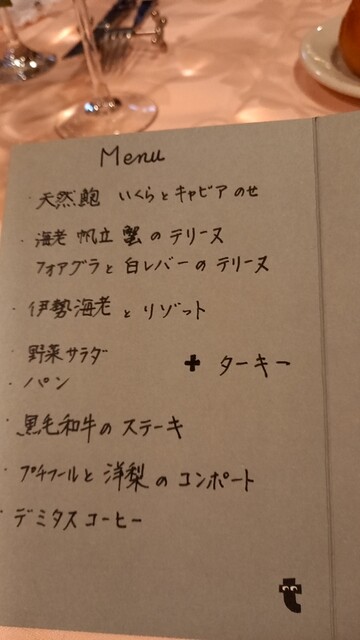 Menu
・天然鮑 いくらとキャビアのせ
・海老 帆立 蟹のテリーヌ
フォアグラと白レバーのテリーヌ
・伊勢海老とリゾット
・野菜サラダ
+ ターキー
・パン
・黒毛和牛のステーキ
・プチフールと洋梨のコンポート
・デミタスコーヒー
t